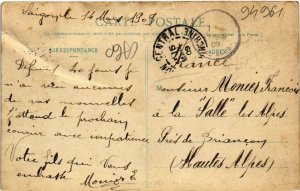 Saigon, le 14 Mars 1909
94961
CARTE POSTALE
CORRESPONDANCE
France
Depuis 20 jours je
n'ai eu aucunes
de vos nouvelles
J'attend le prochain
courrier avec impatience
Votre fils qui Vous
embrasse
Monier E
Monsieur Monier François
à la Salle les Alpes
Près de Briançon
(Hautes Alpes)